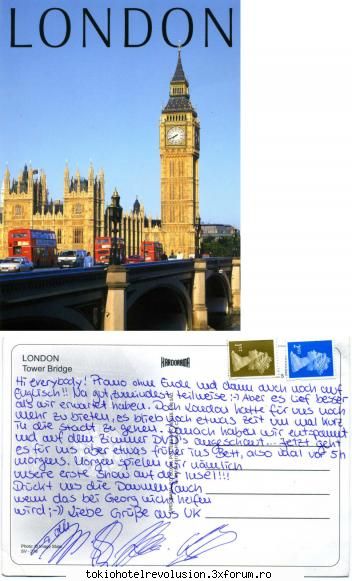 LONDON
LONDON
Tower Bridge
KARDORAMA
1st
2nd
Hi everybody! Promo ohne Ende und dann auch noch auf
Englisch!! Na gut, zumindest teilweise :-) Aber es lief besser
als wir erwartet haben. Doch London hatte für uns noch
mehr zu bieten, es blieb noch etwas Zeit um mal kurz
in die Stadt zu gehen. Danach haben wir entspannt
und auf dem Zimmer DVD's angeschaut... Jetzt geht
es für uns aber etwas früher ins Bett, also mal vor 5h
morgens. Morgen spielen wir nämlich
unsere erste Show auf der Insel!!!
Drückt uns die Daumen, auch
wenn das bei Georg nicht helfen
wird ;-)) Liebe Grüße aus UK
tokiohotelrevolusion.3xforum.ro